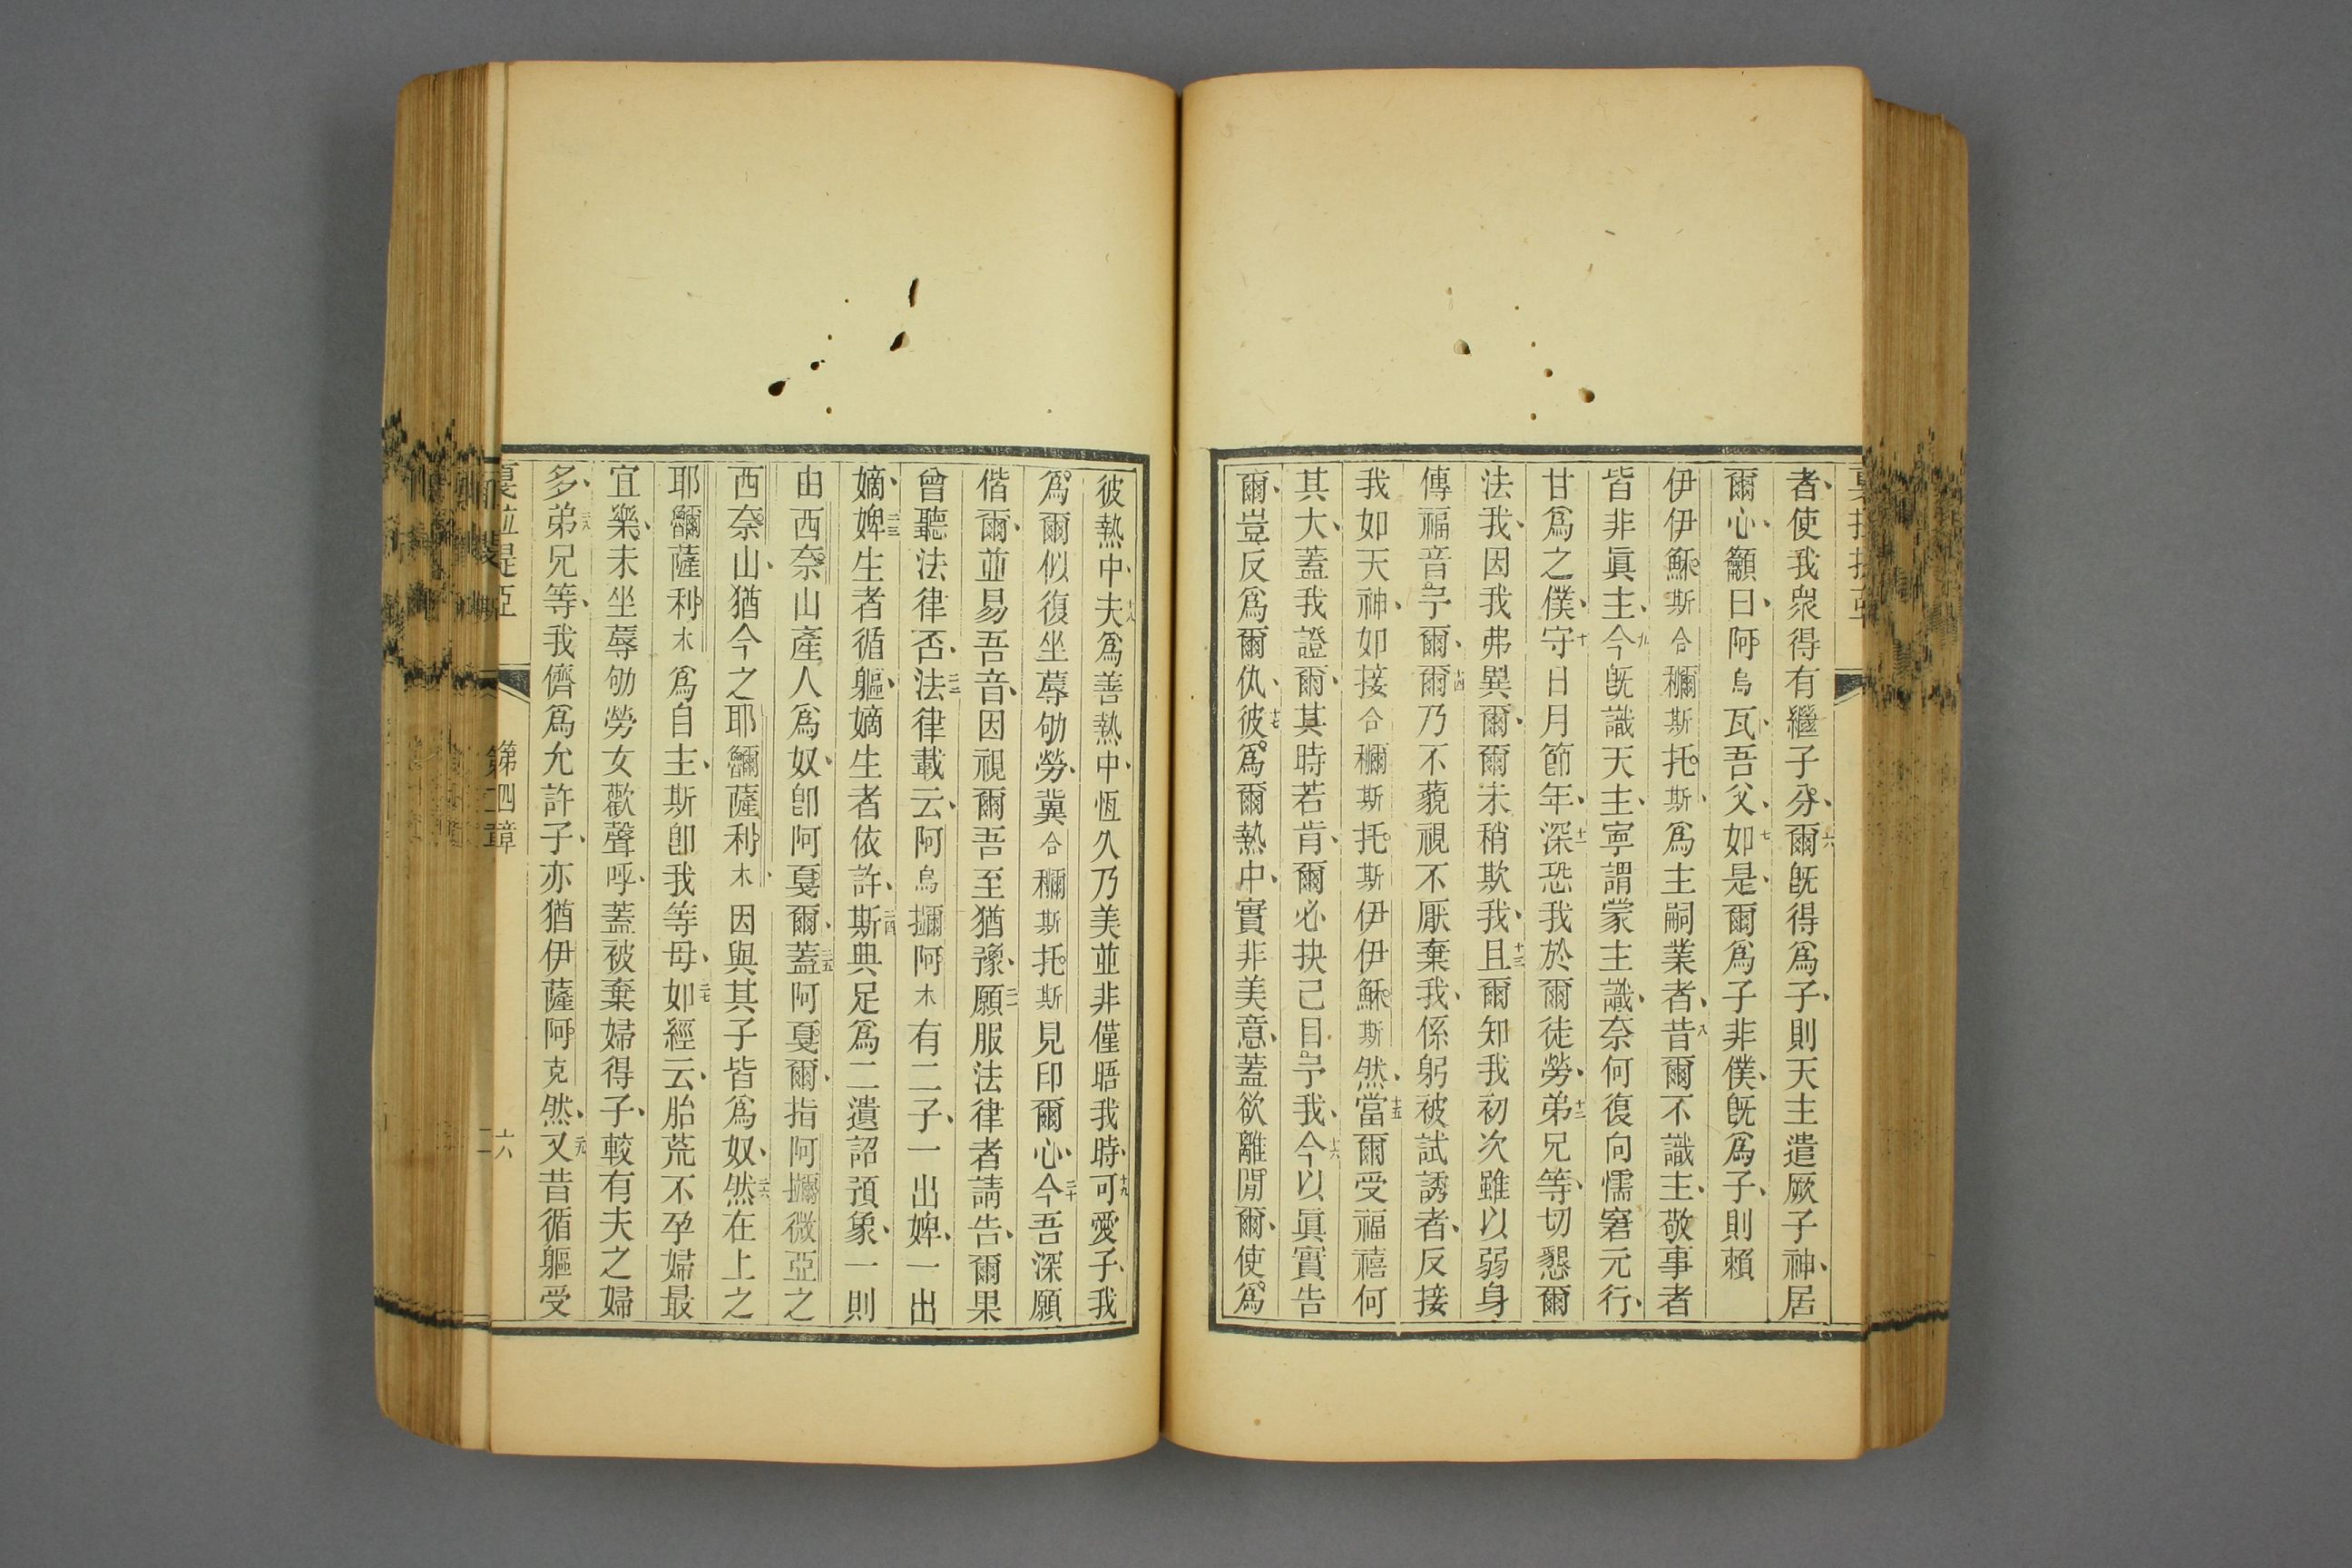 者、使我衆得有繼子分、六爾旣得爲子、則天主遣厥子神、居
爾心、籲曰、阿烏瓦、吾父、七如是、爾爲子非僕、旣爲子、則賴
伊伊穌斯合穪斯托斯、爲主嗣業者、八昔爾不識主、敬事者
皆非眞主、九今旣識天主、寧謂蒙主識、奈何復向懦窘元行、
甘爲之僕、十守日月節年、十一深恐我於爾徒勞、十二弟兄等、切懇爾
法我、因我弗異爾、爾未稍欺我、十三且爾知我初次雖以弱身
傳福音予爾、十四爾乃不藐視不厭棄我、係躬被試誘者、反接
我如天神、如接合穪斯托斯伊伊穌斯然、十五當爾受福禧何
其大、蓋我證爾、其時若肯、爾必抉己目予我、十六今以眞實告
爾、豈反爲爾仇、十七彼爲爾熱中、實非美意、蓋欲離間爾、使爲
彼熱中、十八夫爲善熱中、恆久乃美並非僅晤我時、十九可愛子、我
爲爾似復坐蓐劬勞、冀合穪斯托斯見印爾心、二十今吾深願
偕爾、並易吾音、因視爾吾至猶豫、二一願服法律者請告、爾果
曾聽法律否、二二法律載云、阿烏攧阿木有二子、一出婢、一出
嫡、二三婢生者循軀、嫡生者依許、二四斯典足爲二遺詔預象、一則
由西奈山產人爲奴、卽阿戛爾、二五蓋阿戛爾、指阿攧微亞之
西奈山、猶今之耶酃薩利木、因與其子皆爲奴、二六然在上之
耶酃薩利木爲自主、斯卽我等母、二七如經云、胎荒不孕婦最
宜樂、未坐蓐劬勞女歡聲呼、蓋被棄婦得子、較有夫之婦
多、二八弟兄等、我儕爲允許子、亦猶伊薩阿克然、二九又昔循軀受
戛拉提亞 第四章 六